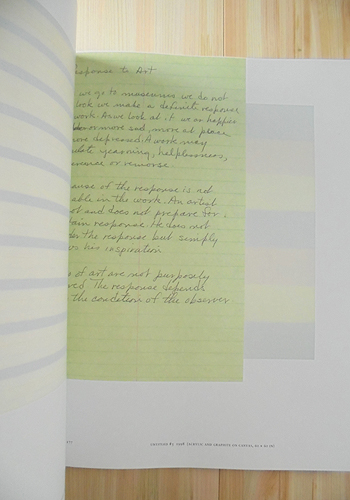 esponse to Art
we go to museums we do not
look we make a definite response
work. As we look at it we are happier
or more sad, more at peace
more depressed. A work may
ulate yearning, helplessness,
erence or remorse.
ause of the response is not
eable in the work. An artist
not and does not prepare for
tain response. He does not
der the response but simply
ws his inspiration
s of art are not purposely
ved. The response depends
the condition of the observer.